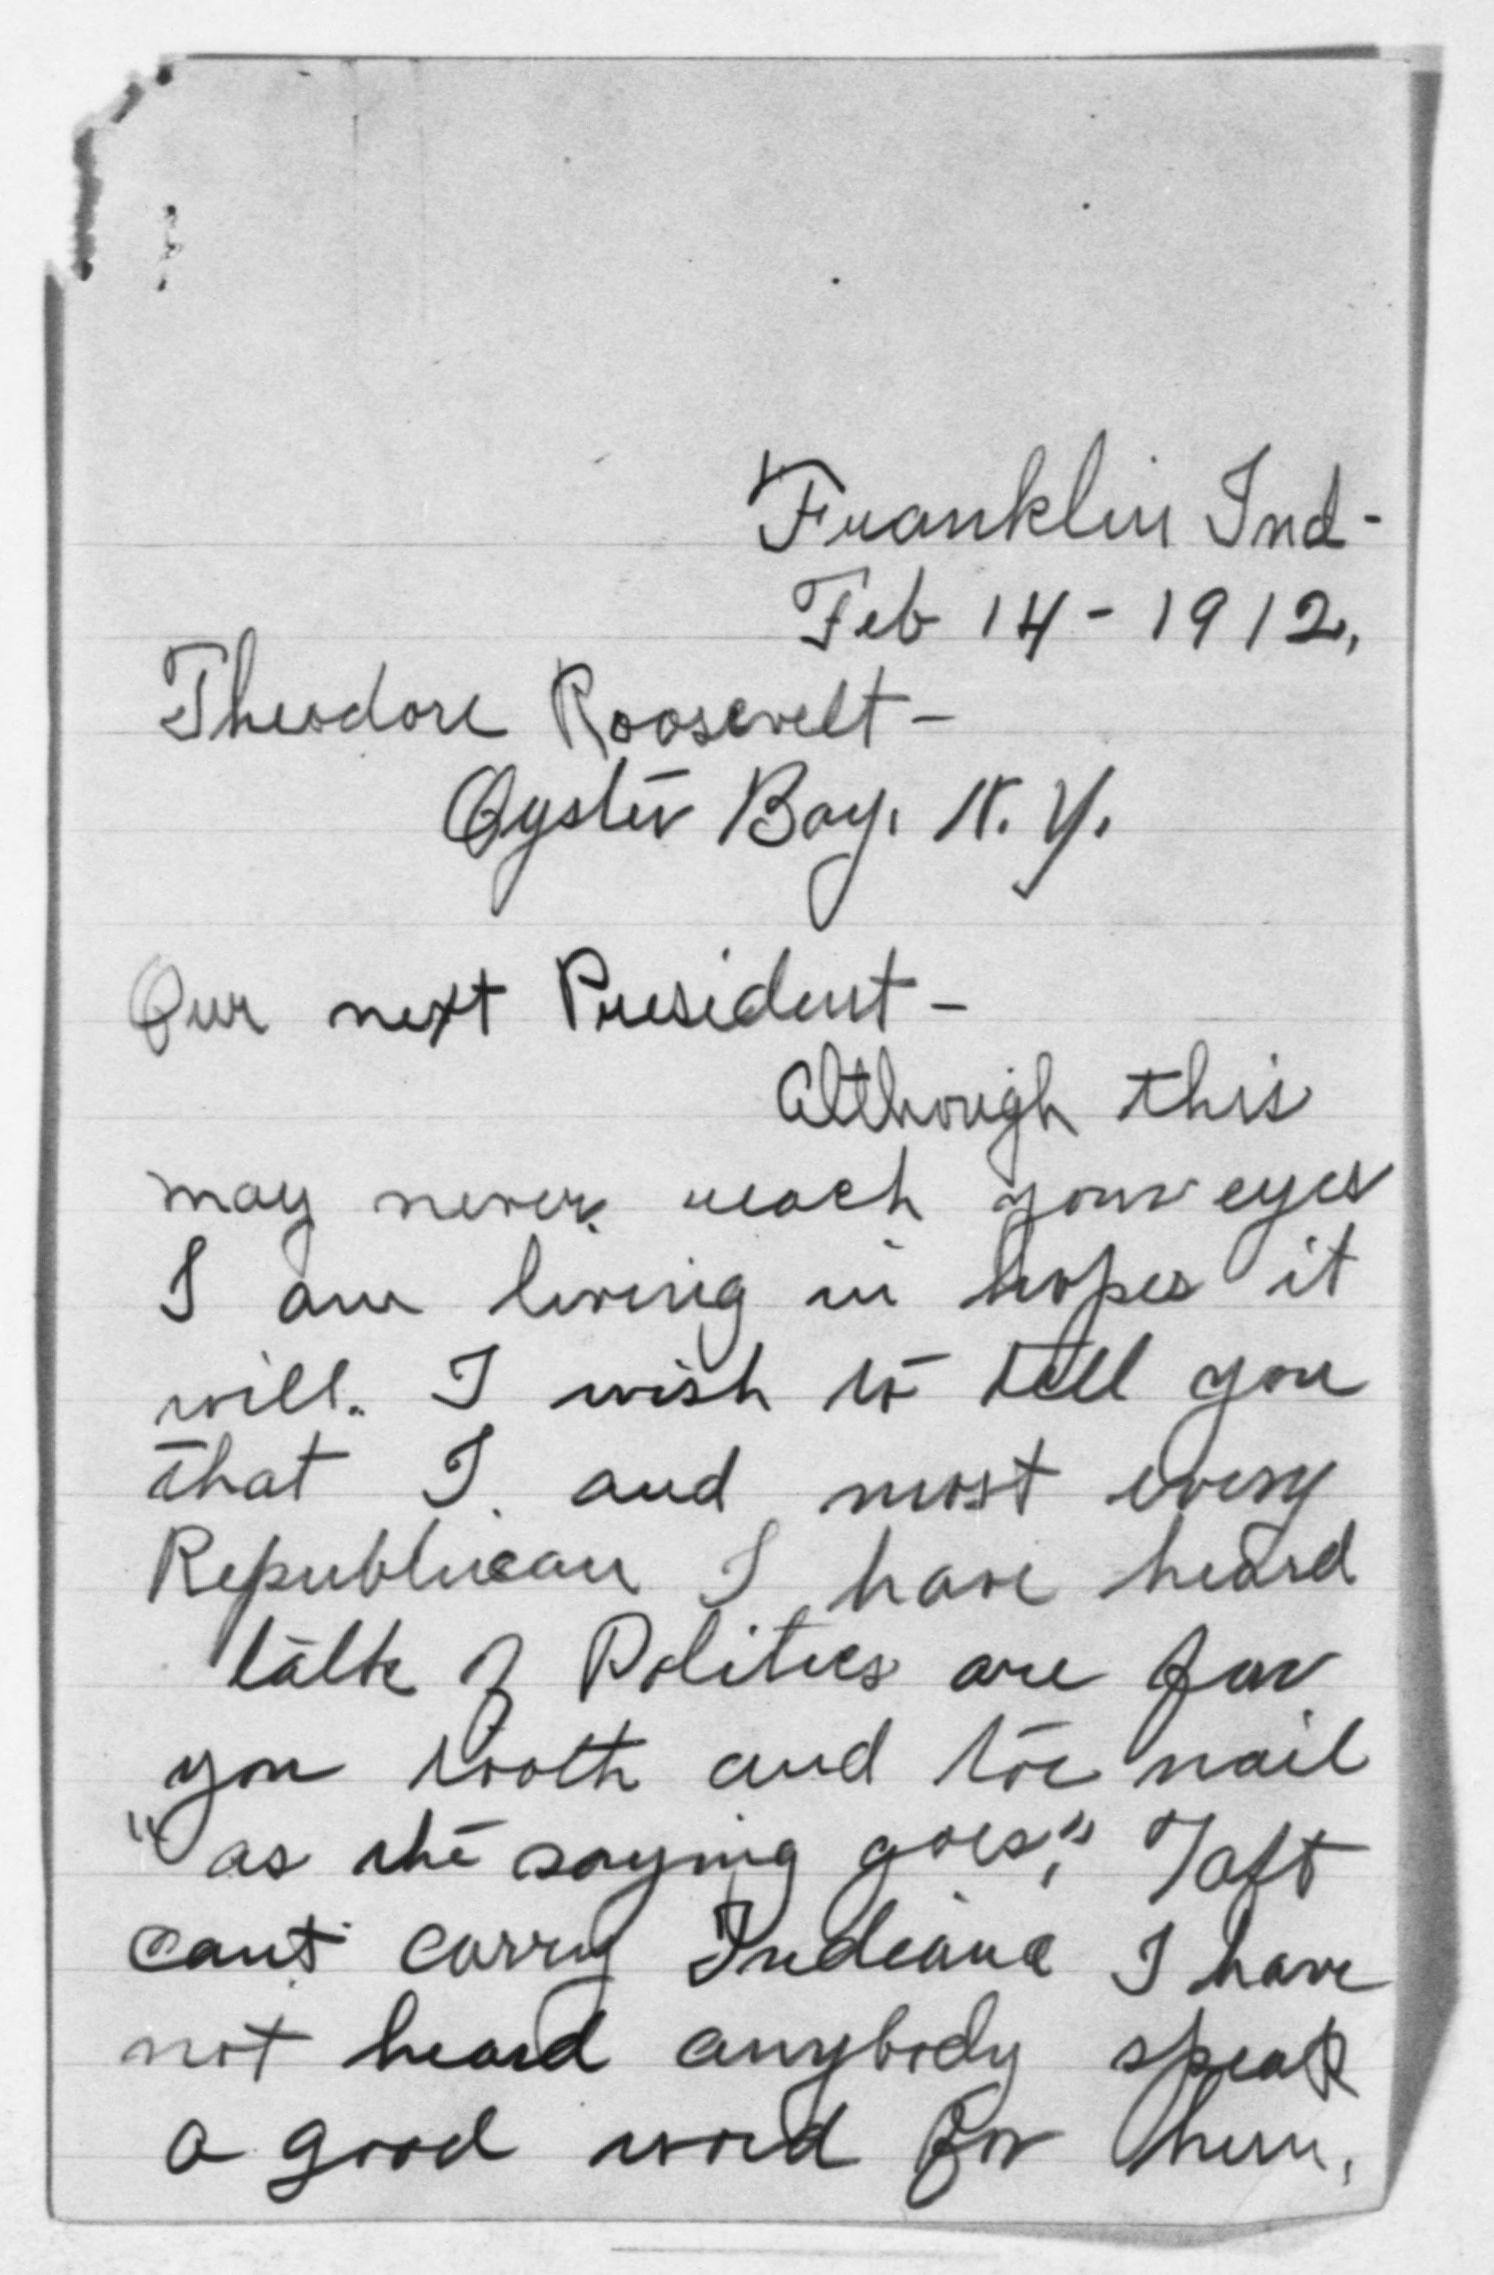 Franklin Ind-
Feb 14-1912,
Theodore Roosevelt-
Oyster Bay. N. Y.
Our next President-
Although this
may never reach your eyes
I am living in hopes it
will. I wish to tell you
that I and most every
Republican I have heard
talk of Politics are for
you tooth and toe nail
"as the saying goes," Taft
cant carry Indiana I have
not heard anybody speak
a good word for him,